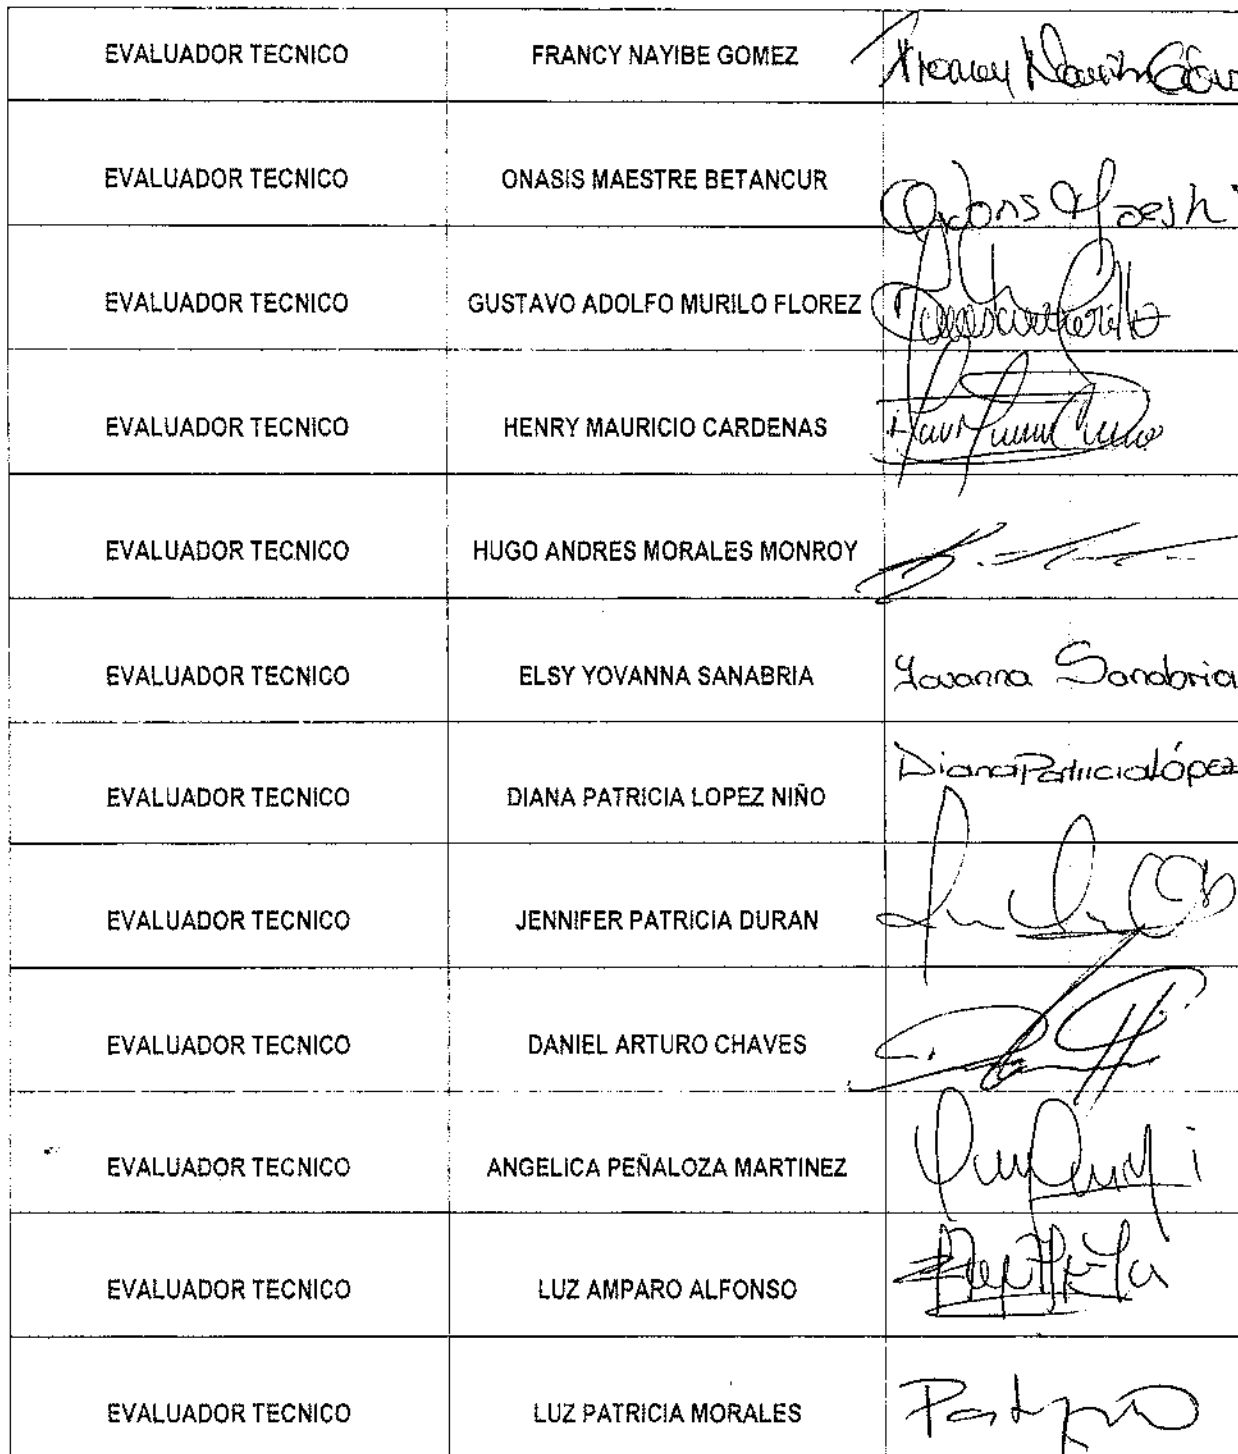 EVALUADOR TECNICO FRANCY NAYIBE GOMEZ
EVALUADOR TECNICO ONASIS MAESTRE BETANCUR
EVALUADOR TECNICO GUSTAVO ADOLFO MURILO FLOREZ
EVALUADOR TECNICO HENRY MAURICIO CARDENAS
EVALUADOR TECNICO HUGO ANDRES MORALES MONROY
EVALUADOR TECNICO ELSY YOVANNA SANABRIA Yovanna Sanabria
EVALUADOR TECNICO DIANA PATRICIA LOPEZ NIÑO Diana Patricia López
EVALUADOR TECNICO JENNIFER PATRICIA DURAN
EVALUADOR TECNICO DANIEL ARTURO CHAVES
EVALUADOR TECNICO ANGELICA PEÑALOZA MARTINEZ
EVALUADOR TECNICO LUZ AMPARO ALFONSO
EVALUADOR TECNICO LUZ PATRICIA MORALES